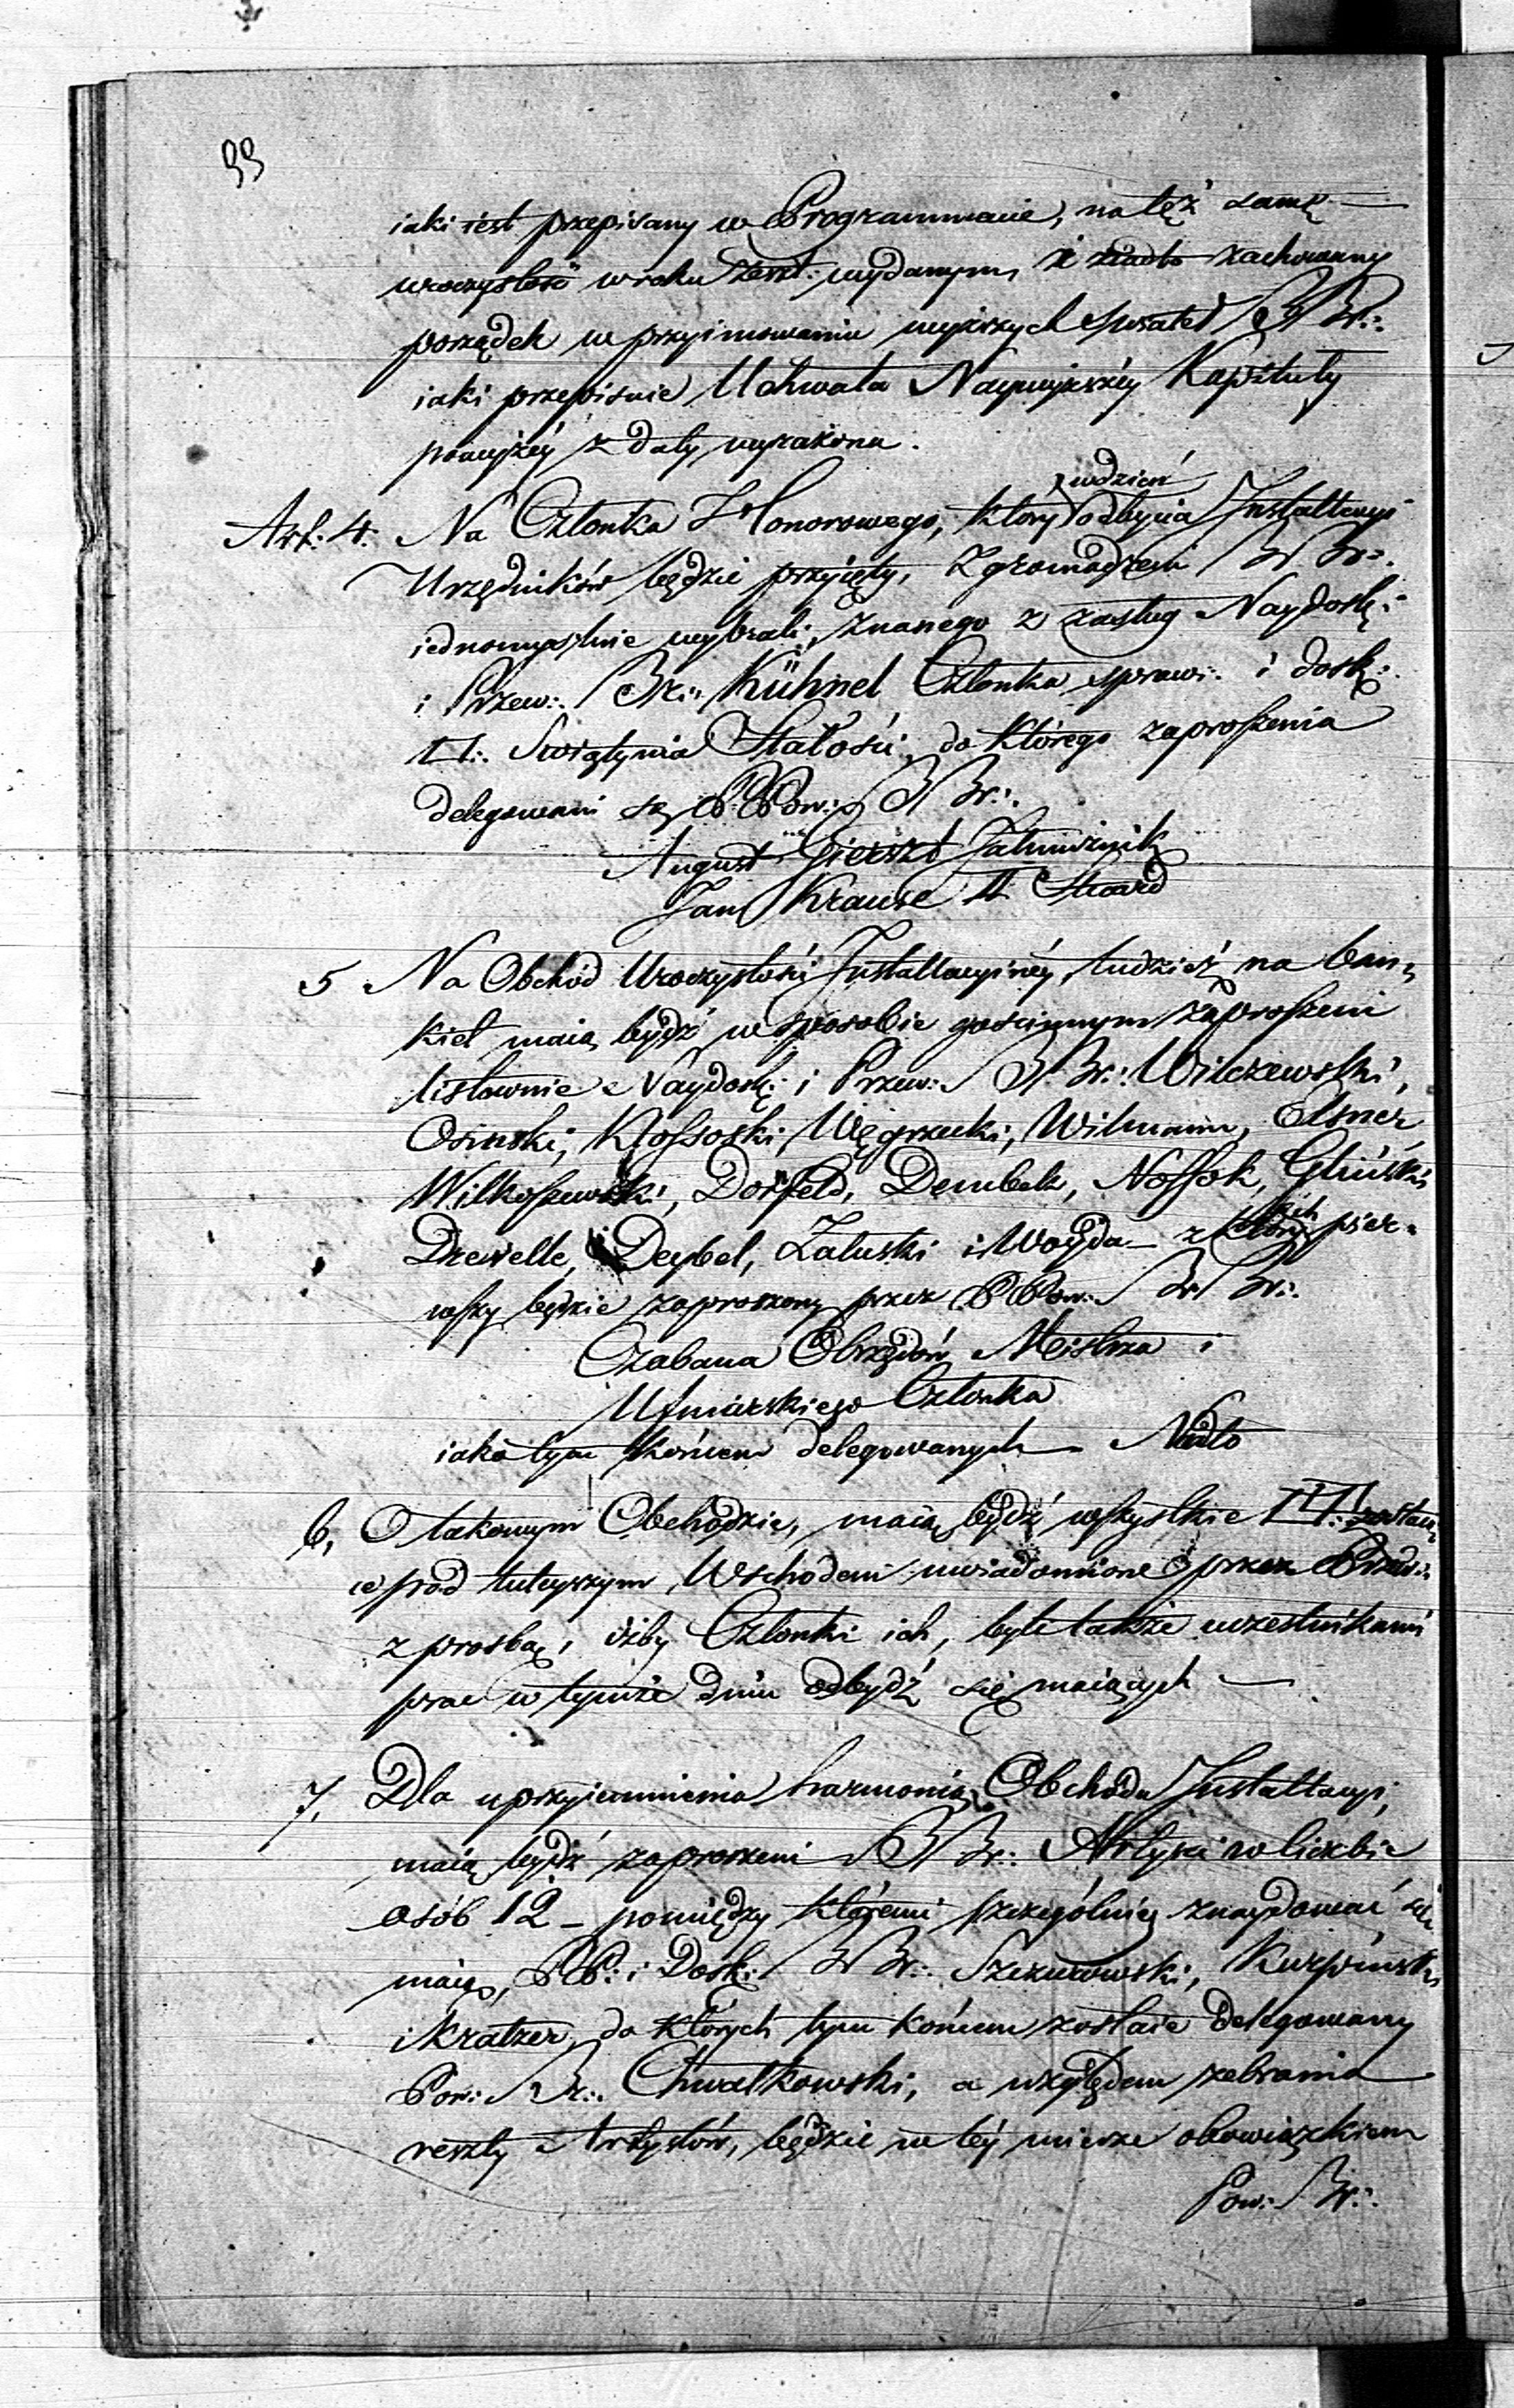 99
iaki iest przepisany w Programmacie, na tęż samą —
uroczystość w roku zeszł: wydanym, i zachowany
porządek w przyimowaniu wyższych Świateł BBr∴
iaki przepisuie Uchwała Naywyższéy Kapituły
powyżéy z daty wyrażona.
Art: 4. Na Członka Honorowego, który wdzień odbycia Installacyi
Urzędników będzie przyięty, Zgromadzeni BBr∴
iednomyślnie wybrali, znanego z zasług Naydosk:
i Przew∴ Br∴ Kühnel Członka spraw: i dosk:
□∴ Swiątynia Stałości, do którego zaproszenia
delegowani są PPow: BBr∴
August Gierszt Jałmużnik
Jan Krause II Stuard
5 Na Obchód Uroczystości Installacyinéy, tudzież na ban-
kiet maią bydź w sposobie gościnnym zaproszeni
listownie Naydosk: i Przew: BBr∴ Wilczewski,
Osinski, Kossoski, Węgrzecki, Wilmann, Elsner
Wilkoszewski, Dorfeld, Dembek, Nossok, Gliński
Drewelle, Deybel, Załuski i Woyda — z których pier-
wszy będzie zaproszony przez PPow: BBr∴
Czabana Obrzędów Meistrza i
Umiarskiego Członka
iako tym końcem delegowanych — Nadto
6, O takowym Obchodzie, maią bydź wszystkie □□∴ zostaią
ce pod tuteyszym Wschodem uwiadomione przez
z prosbą, iżby Członki ich, byli także uczestnikami
prac w tymże dniu odbydź się maiących —
7, Dla uprzyiemnienia harmonią Obchodu Installacyi,
maią bydź zaproszeni BBr∴ Artyści w liczbie
osób 12 — pomiędzy któremi szczególniéy znaydować się
maią, PP: i Dosk: BBr∴ Szczurowski, Kurpiński
i Kratzer, do których tym końcem zostaie delegowany
Pow: Br∴ Chwałkowski, a względem zebrania
reszty Artystów, będzie w téy mierze obowiązkiem
Pow: Br∴